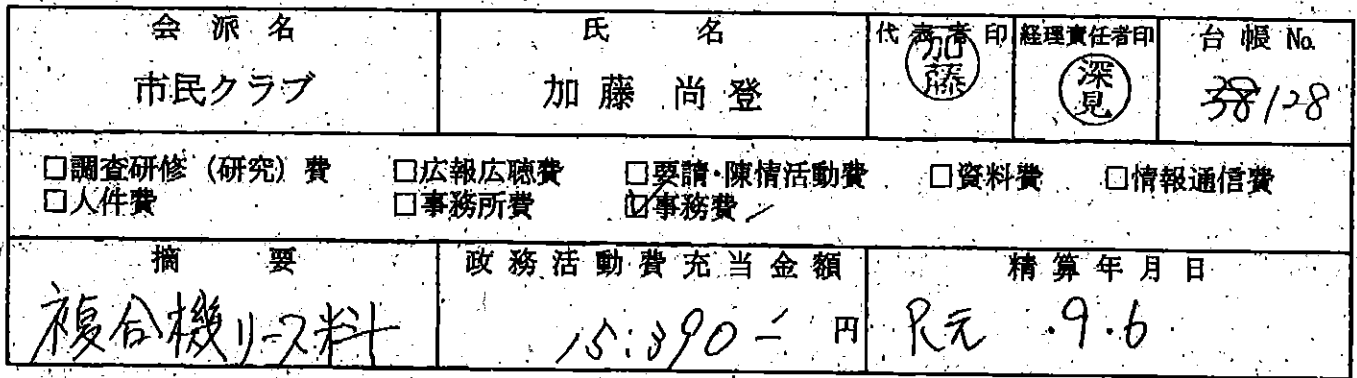 会派名 氏名 代表者印 経理責任者印 台帳 No.
市民クラブ 加藤 尚登 加藤 深見 128
□調査研修（研究）費 □広報広聴費 □要請・陳情活動費 □資料費 □情報通信費
□人件費 □事務所費 ☑事務費
摘要 政務活動費充当金額 精算年月日
複合機リース料 15,390- 円 R元.9.6